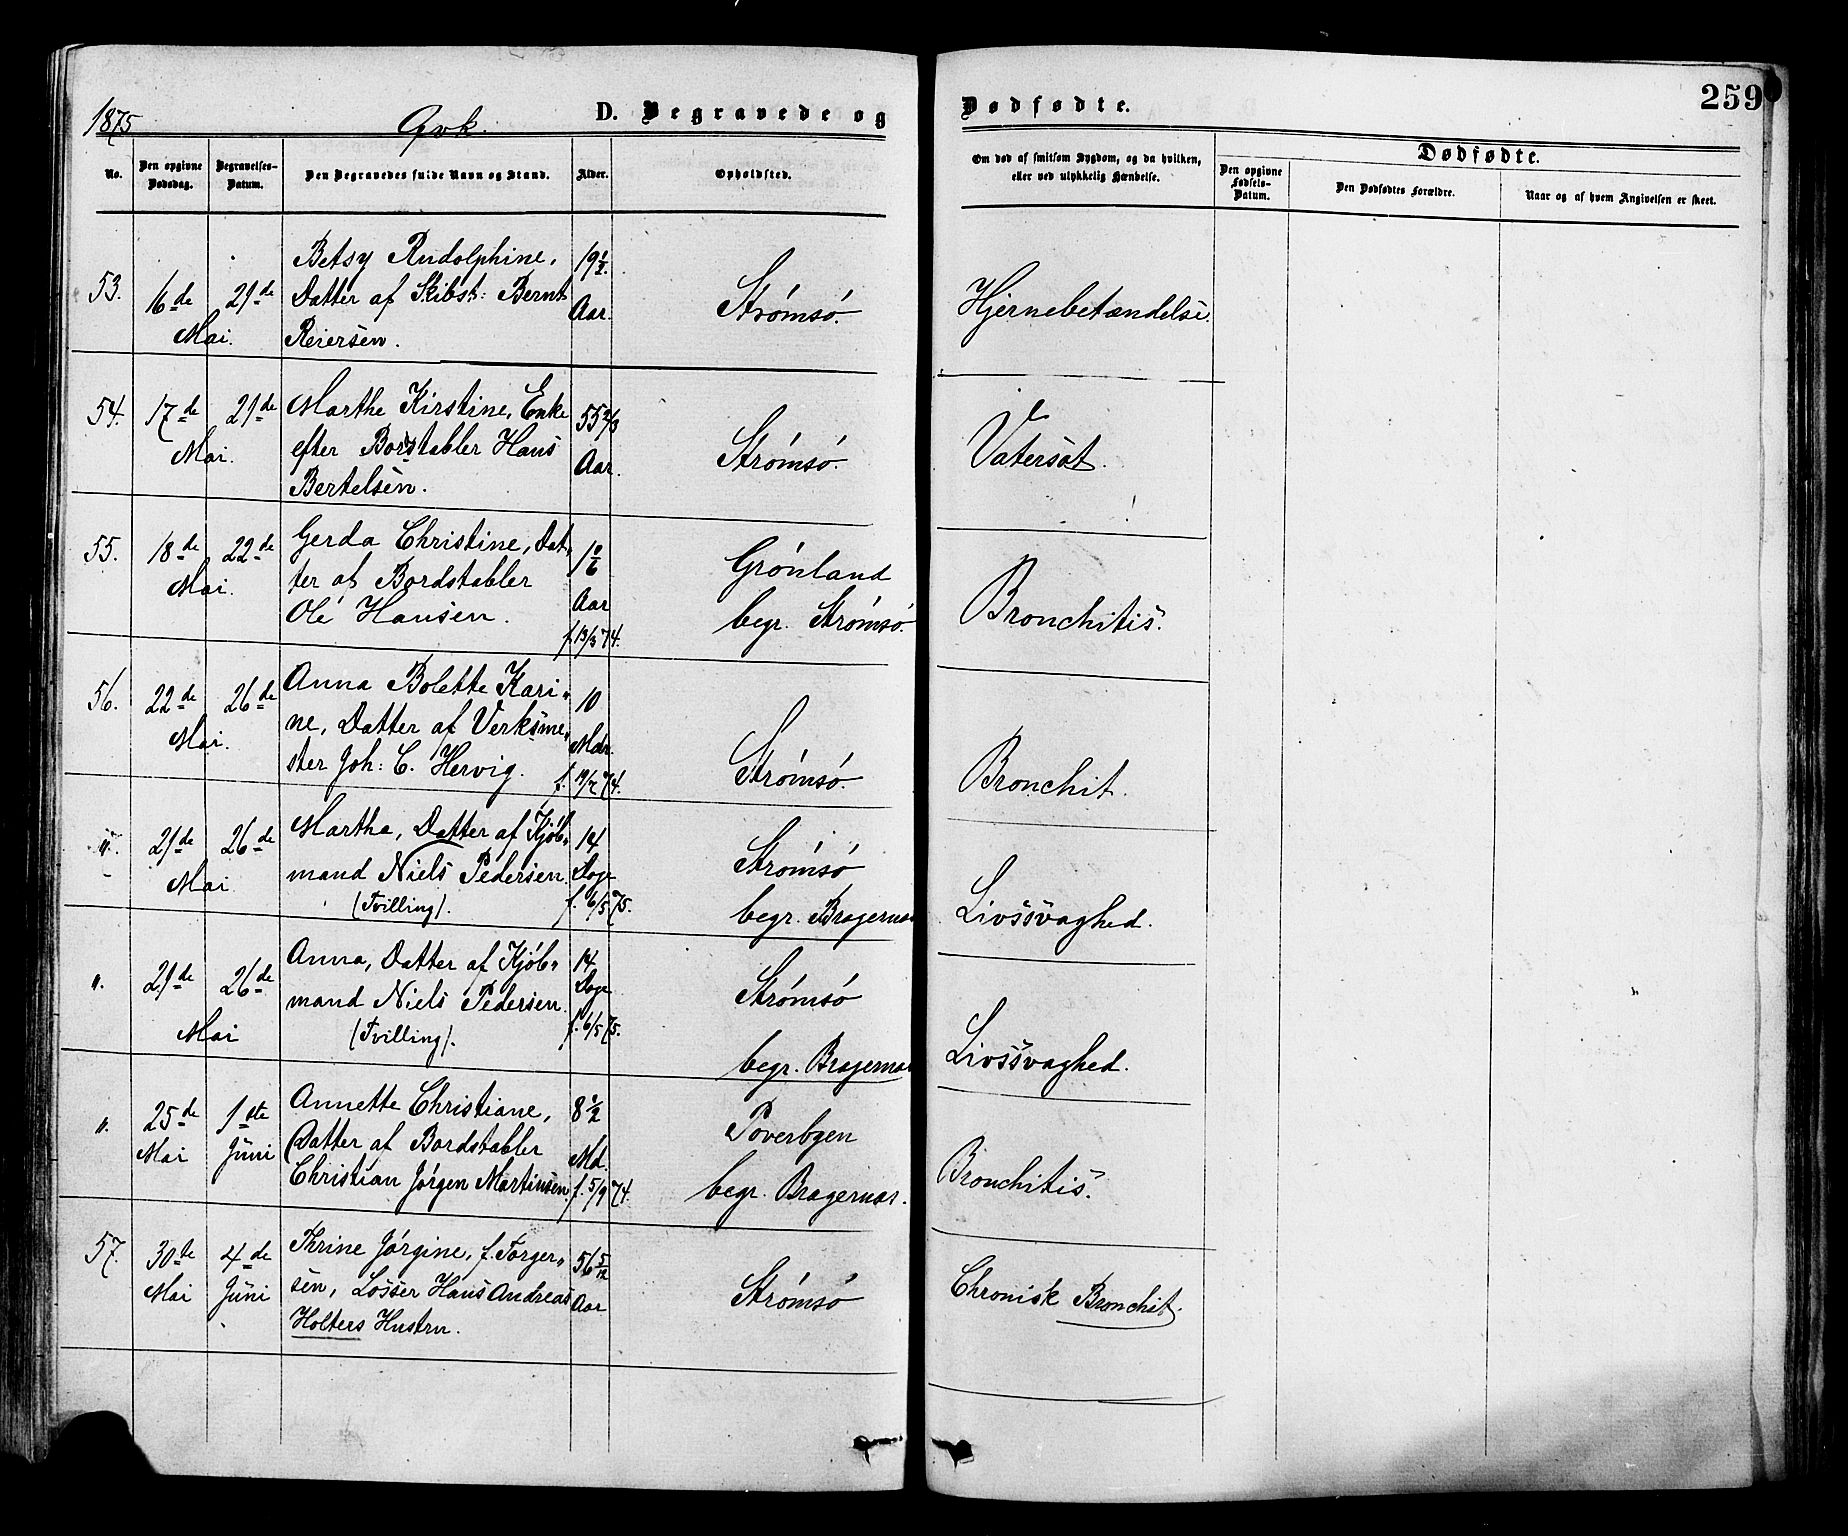 259
1875 Qvk. D. Begravede og Dødfødte.
No.
Den opgivne Dødsdag.
Begravelses-Datum.
Den Begravedes fulde Navn og Stand.
Alder.
Opholdsted.
Om død af smitsom Sygdom, og da hvilken,
eller ved ulykkelig Hændelse.
Dødfødte.
Den opgivne Fødsels-Datum.
Den Dødfødtes Forældre.
Naar og af hvem Angivelsen er skeet.
53. 16de 21de Mai.
Betsy Rudolphine,
Datter af Skibst: Bernt
Reiersen.
19½ Aar.
Strømsö.
Hjernebetændelse.
54. 17de 21de Mai.
Marthe Kirstine, Enke
efter Bordstabler Hans
Bertelsen.
55 2/3 Aar.
Strømsö.
Vatersot.
55. 18de 22de Mai.
Gerda Christine, Dat-
ter af Bordstabler
Ole Hansen.
1 1/6 Aar
f. 13/3 74.
Grönland
begr. Strømsö.
Bronchitis.
56. 22de 26de Mai.
Anna Bolette Kari-
ne, Datter af Verksme-
ster Joh: C. Hervig.
10 Mdr.
f. 19/7 74.
Strømsö.
Bronchit.
". 21de 26de Mai
Martha, Datter af Kjöb-
mand Niels Pedersen.
(Tvilling).
14 Dage
f. 6/5 75.
Strømsö
begr. Bragernæs
Livssvaghed.
". 21de 26de Mai
Anna, Datter af Kjöb-
mand Niels Pedersen.
(Tvilling).
14 Dage
f. 6/5 75.
Strømsö
begr. Bragernæs
Livssvaghed.
". 25de Mai 1ste Juni
Annette Christiane,
Datter af Bordstabler
Christian Jörgen Martinsen.
8½ Md.
f. 5/9 74.
Toverbgen
begr. Bragernæs.
Bronchitis.
57. 30te Mai 4de Juni
Thrine Jörgine, f. Torger-
sen, Losser Hans Andreas
Holters Hustru.
56 5/12 Aar
Strømsö
Chronisk Bronchit.